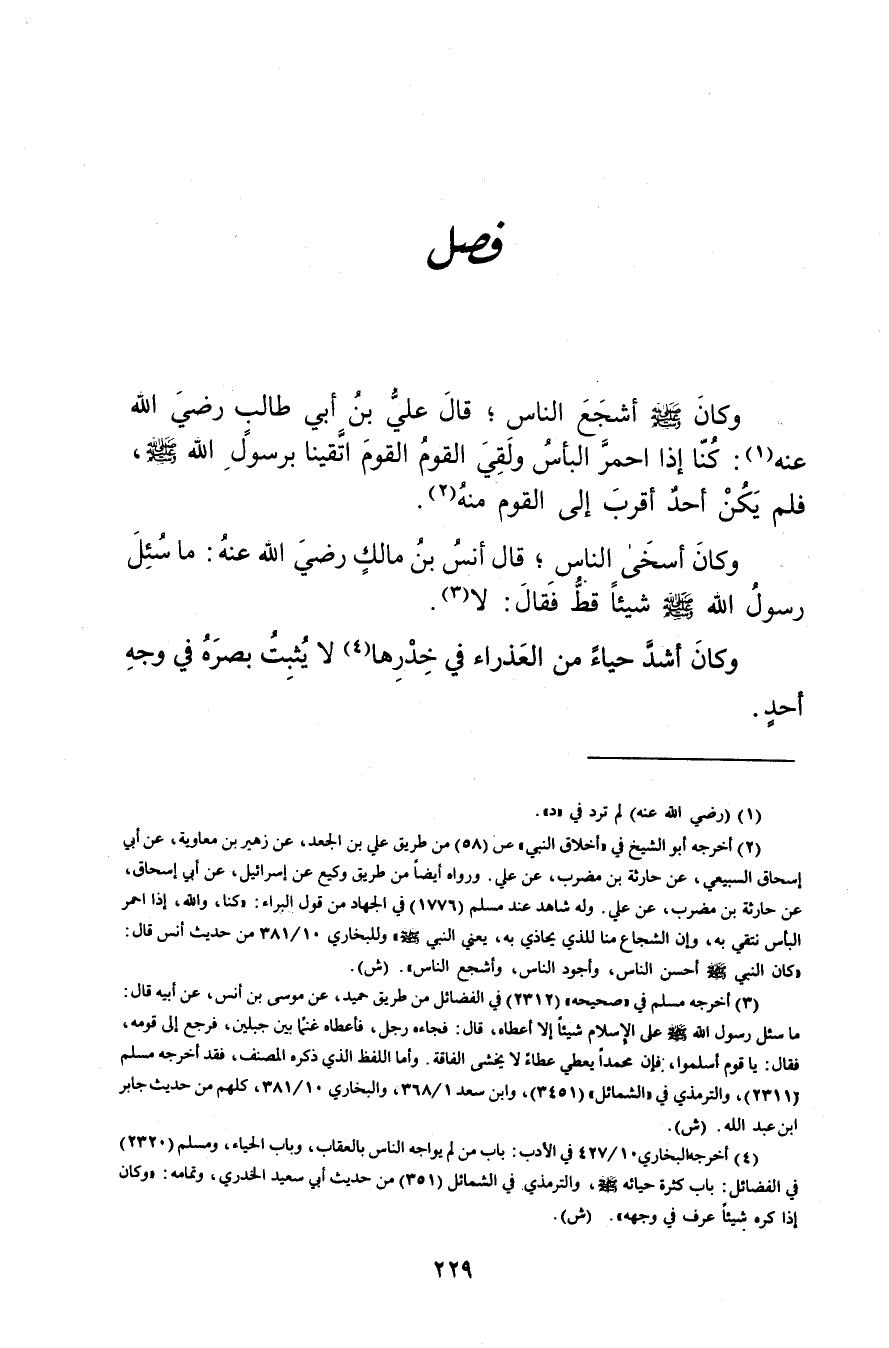 فصل
وكانَ ﷺ أشجَعَ الناس ؛ قالَ عليُّ بنُ أبي طالبٍ رضيَ الله
عنه(١): كُنّا إذا احمرَّ البأسُ ولَقِيَ القومُ القومَ اتَّقينا برسولِ الله ﷺ ،
فلم يَكُنْ أحدٌ أقربَ إلى القوم منهُ(٢).
وكانَ أسخَىٰ الناس ؛ قال أنسُ بنُ مالكٍ رضيَ الله عنهُ: ما سُئِلَ
رسولُ الله ﷺ شيئاً قطُّ فَقالَ: لا(٣).
وكانَ أشدَّ حياءً من العَذراء في خِدْرِها(٤) لا يُثبِتُ بصرَهُ في وجهِ
أحدٍ.
(١) (رضي الله عنه) لم ترد في «د».
(٢) أخرجه أبو الشيخ في «أخلاق النبي» ص (٥٨) من طريق علي بن الجعد، عن زهير بن معاوية، عن أبي
إسحاق السبيعي، عن حارثة بن مضرب، عن علي. ورواه أيضاً من طريق وكيع عن إسرائيل، عن أبي إسحاق،
عن حارثة بن مضرب، عن علي. وله شاهد عند مسلم (١٧٧٦) في الجهاد من قول البراء: «كنا، والله، إذا احمر
البأس نتقي به، وإن الشجاع منا للذي يحاذي به، يعني النبي ﷺ» وللبخاري ٣٨١/١٠ من حديث أنس قال:
«كان النبي ﷺ أحسن الناس، وأجود الناس، وأشجع الناس». (ش).
(٣) أخرجه مسلم في «صحيحه» (٢٣١٢) في الفضائل من طريق حميد، عن موسى بن أنس، عن أبيه قال:
ما سئل رسول الله ﷺ على الإسلام شيئاً إلا أعطاه، قال: فجاءه رجل، فأعطاه غنمًا بين جبلين، فرجع إلى قومه،
فقال: يا قوم أسلموا، فإن محمداً يعطي عطاءً لا يخشى الفاقة. وأما اللفظ الذي ذكره المصنف، فقد أخرجه مسلم
(٢٣١١)، والترمذي في «الشمائل» (٣٤٥١)، وابن سعد ٣٦٨/١، والبخاري ٣٨١/١٠، كلهم من حديث جابر
ابن عبد الله. (ش).
(٤) أخرجه البخاري ٤٢٧/١٠ في الأدب: باب من لم يواجه الناس بالعقاب، وباب الحياء، ومسلم (٢٣٢٠)
في الفضائل: باب كثرة حيائه ﷺ، والترمذي في الشمائل (٣٥١) من حديث أبي سعيد الخدري، وتمامه: «وكان
إذا كره شيئاً عرف في وجهه». (ش).
٢٢٩